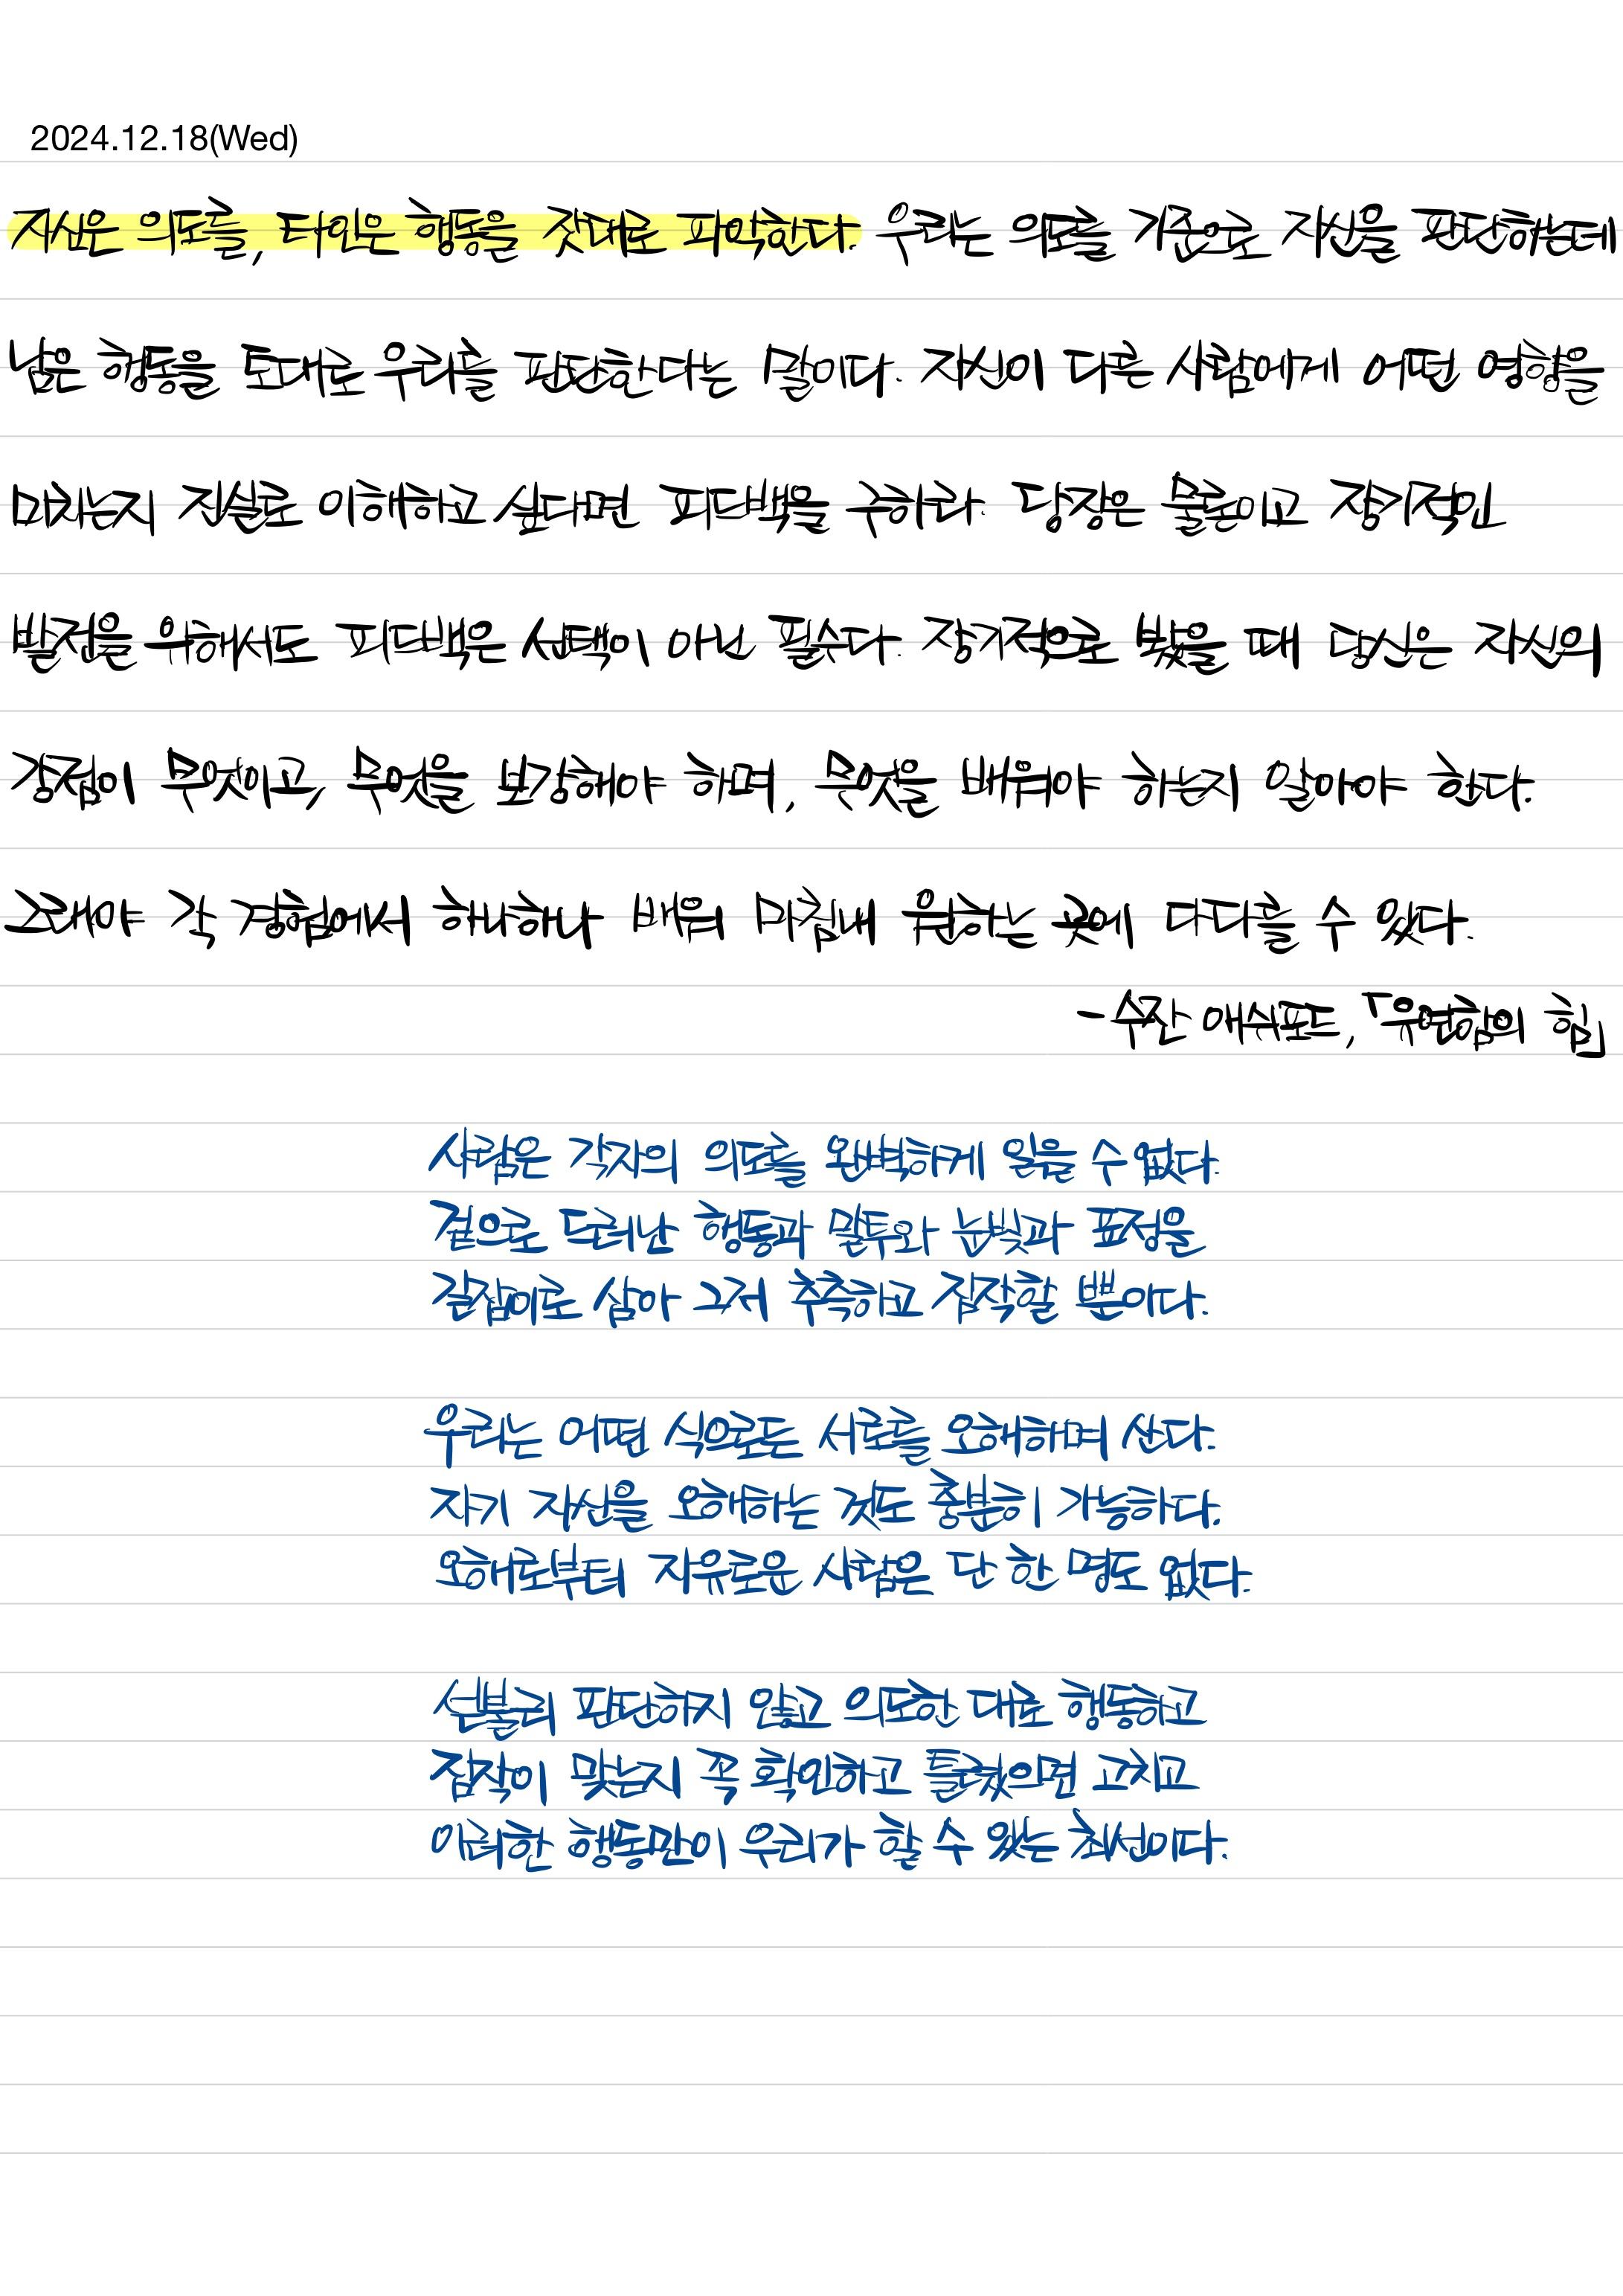 2024.12.18(Wed)
자신은 의도를, 타인은 행동을 잣대로 파악한다. 우리는 의도를 기준으로 자신을 판단하는데
남은 행동을 토대로 우리를 판단한다는 말이다. 자신이 다른 사람에게 어떤 영향을
미치는지 진실로 이해하고 싶다면 피드백을 구하라. 당장은 물론이고 장기적인
발전을 위해서도 피드백은 선택이 아닌 필수다. 장기적으로 봤을 때 당신은 자신의
강점이 무엇이고, 무엇을 보강해야 하며, 무엇을 배워야 하는지 알아야 한다.
그래야 각 경험에서 하나하나 배워 마침내 원하는 곳에 다다를 수 있다.
- 수잔 애쉬포드, 「유연함의 힘」
사람은 각자의 의도를 완벽하게 읽을 수 없다.
겉으로 드러난 행동과 말투와 눈빛과 표정을
길잡이로 삼아 그저 추측하고 짐작할 뿐이다.
우리는 어떤 식으로든 서로를 오해하며 산다.
자기 자신을 오해하는 것도 충분히 가능하다.
오해로부터 자유로운 사람은 단 한 명도 없다.
섣불리 판단하지 않고 의도한 대로 행동하고
짐작이 맞는지 꼭 확인하고 틀렸으면 고치고
이러한 행동만이 우리가 할 수 있는 최선이다.